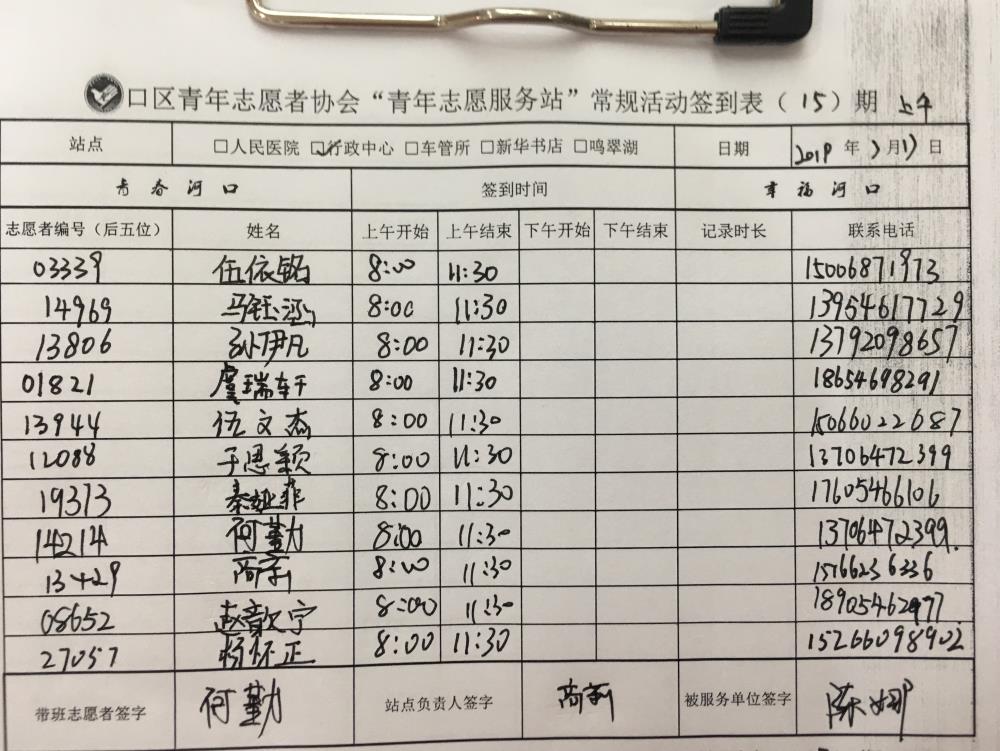 口区青年志愿者协会“青年志愿服务站”常规活动签到表（15）期 上午
站点 □人民医院 ☑行政中心 □车管所 □新华书店 □鸣翠湖 日期 2019年 月 日
青春河口 签到时间 幸福河口
志愿者编号（后五位） 姓名 上午开始 上午结束 下午开始 下午结束 记录时长 联系电话
03339 伍依铭 8:00 11:30 15006871973
14969 马钰涵 8:00 11:30 13954617729
13806 孙伊凡 8:00 11:30 13792098657
01821 虞瑞轩 8:00 11:30 18654698291
13944 伍文杰 8:00 11:30 15066022687
12088 于思颖 8:00 11:30 13706472399
19373 秦娅菲 8:00 11:30 17605466106
14214 何勤 8:00 11:30 13706472399.
13429 8:00 11:30 15166236336
08652 赵歆宁 8:00 11:30 18905462977
27057 杨怀正 8:00 11:30 15266098902
带班志愿者签字 何勤 站点负责人签字 被服务单位签字 陈娜